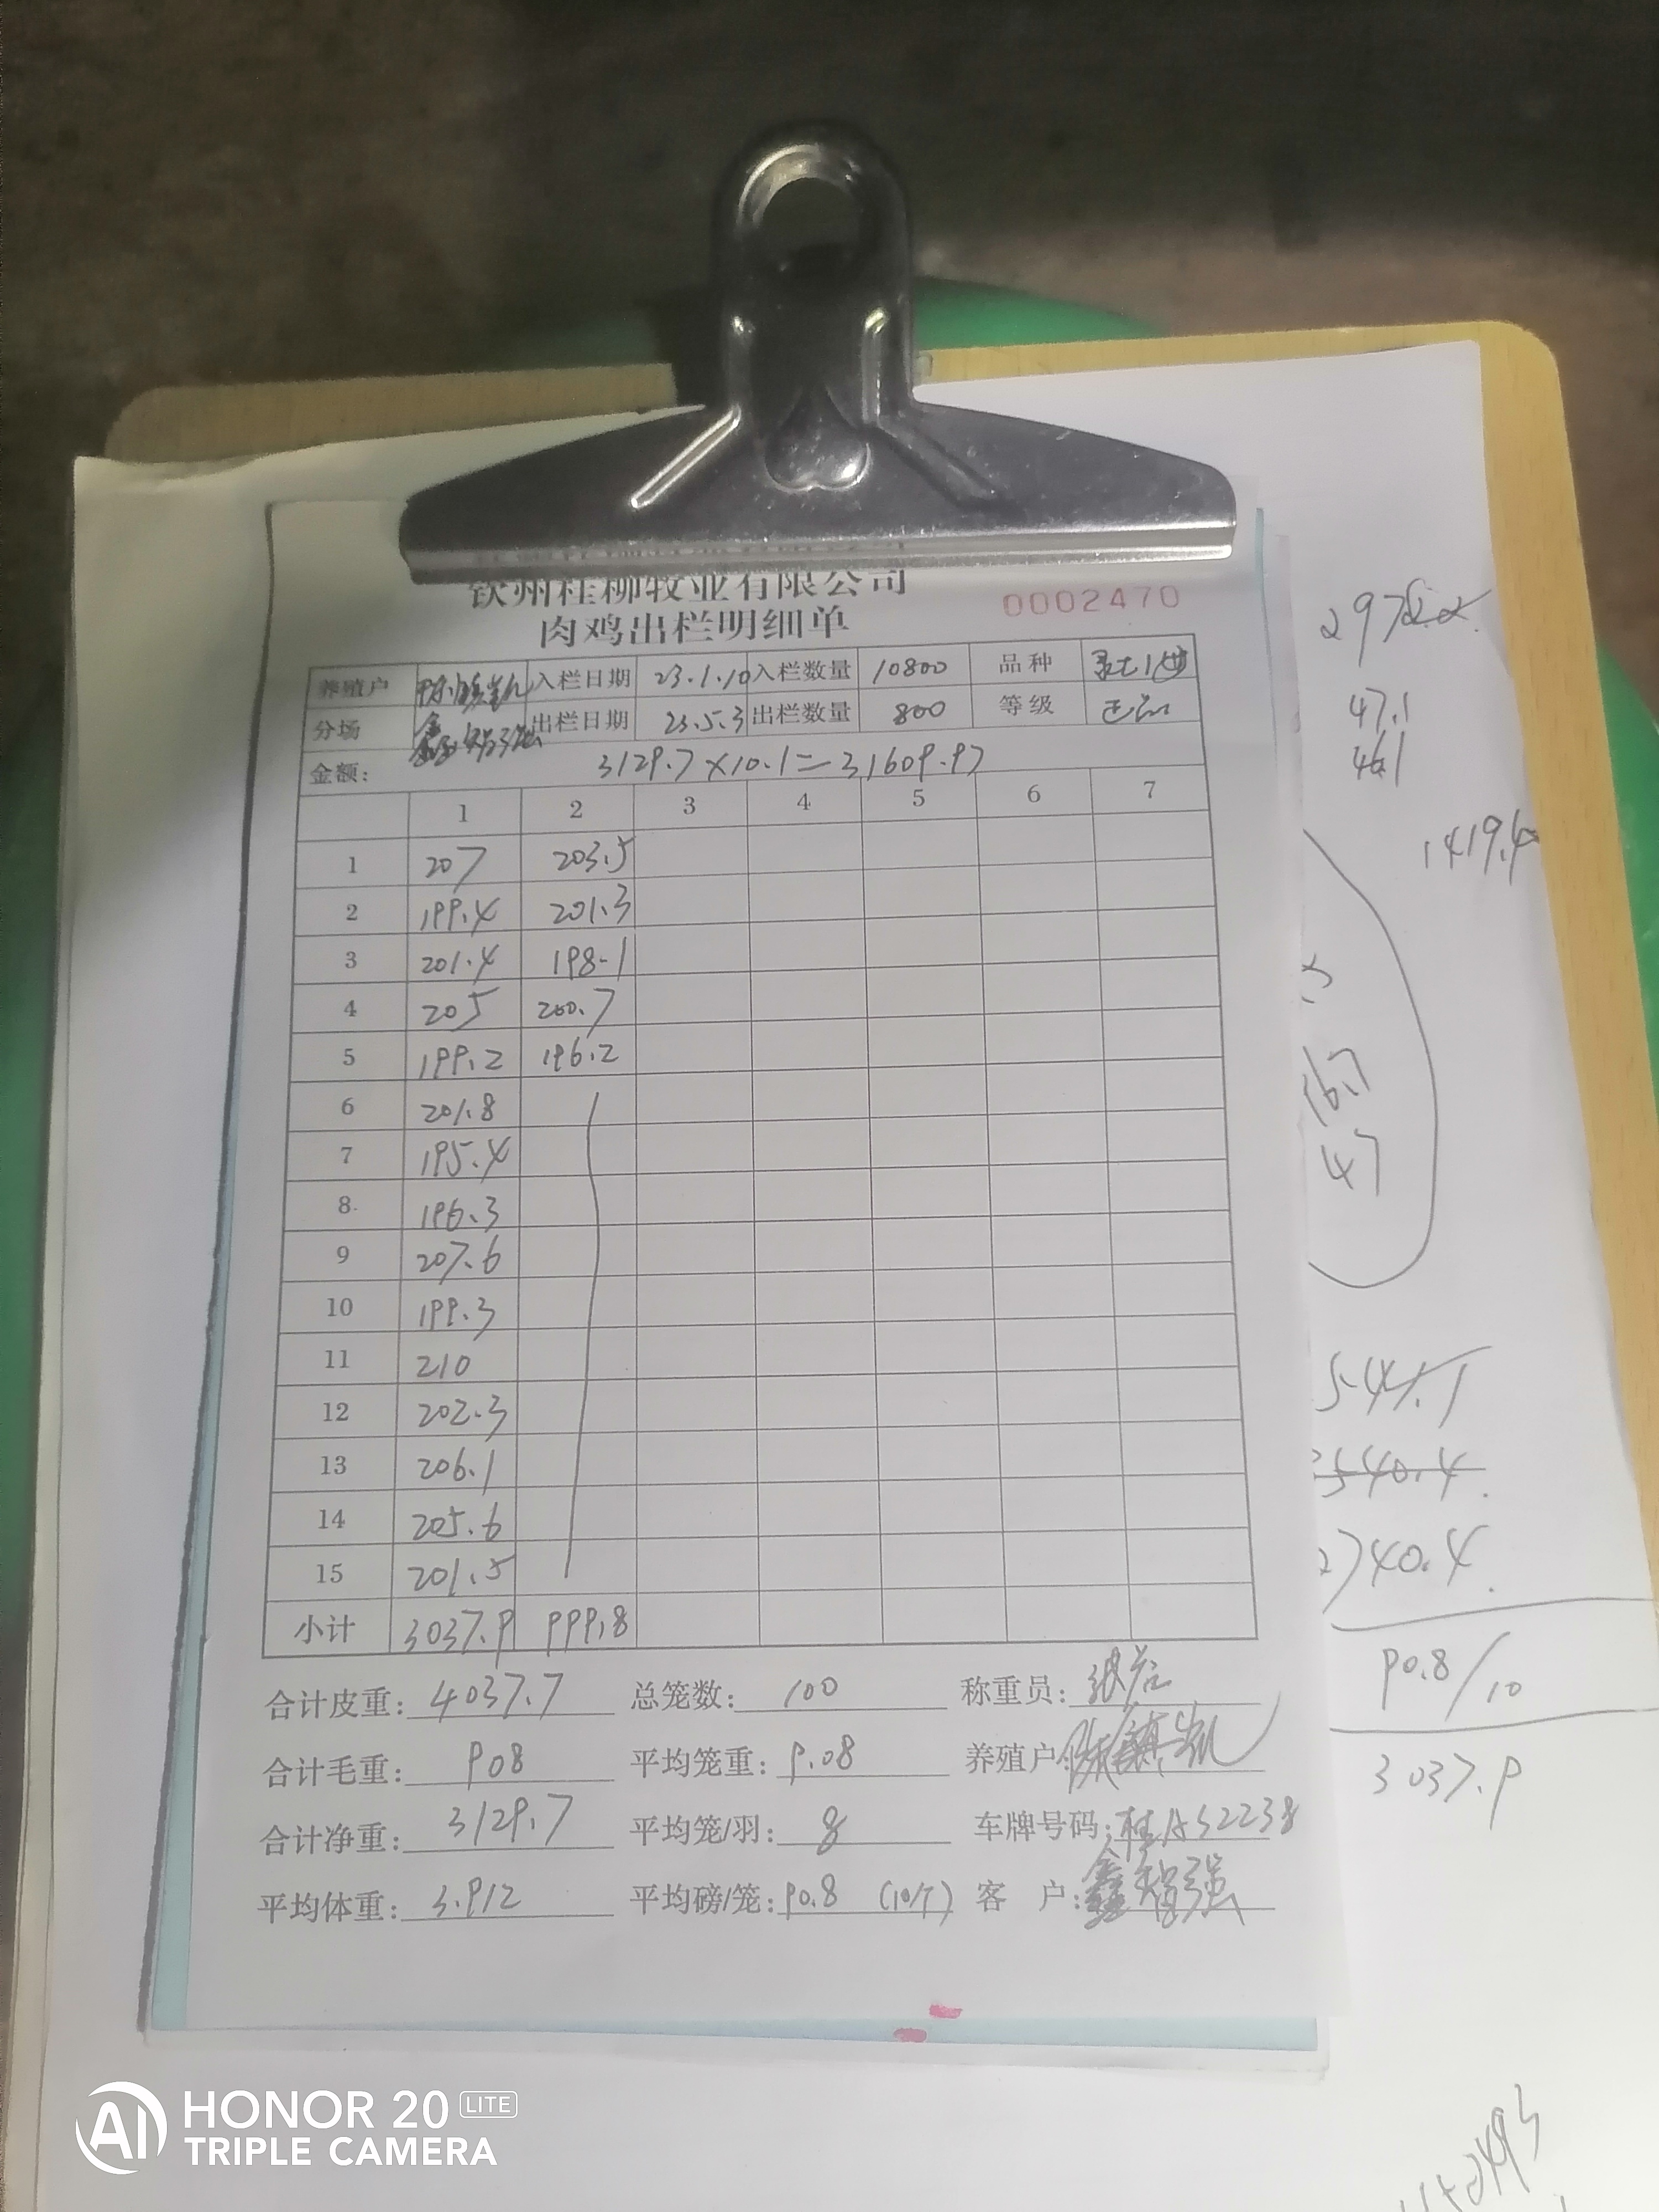 钦州桂柳牧业有限公司
肉鸡出栏明细单
0002470
养殖户 入栏日期 23.1.10 入栏数量 10800 品种
分场 鑫智强 出栏日期 23.5.3 出栏数量 800 等级 正品
金额: 3129.7×10.1=31609.97
1 2 3 4 5 6 7
1 207 203.5
2 199.4 201.3
3 201.4 198.1
4 205 200.7
5 199.2 196.2
6 201.8
7 195.4
8 196.3
9 207.6
10 199.3
11 210
12 202.3
13 206.1
14 205.6
15 201.5
小计 3037.9 999.8
合计皮重: 4037.7 总笼数: 100 称重员:
合计毛重: 908 平均笼重: 9.08 养殖户:
合计净重: 3129.7 平均笼/羽: 8 车牌号码: 桂AS2238
平均体重: 3.912 平均磅/笼: 90.8 (10/T) 客 户: 鑫智强
47.1
46.1
1419.4
16.7
47
541.1
540.4
2740.4
90.8/10
3037.9
AI HONOR 20 LITE
TRIPLE CAMERA